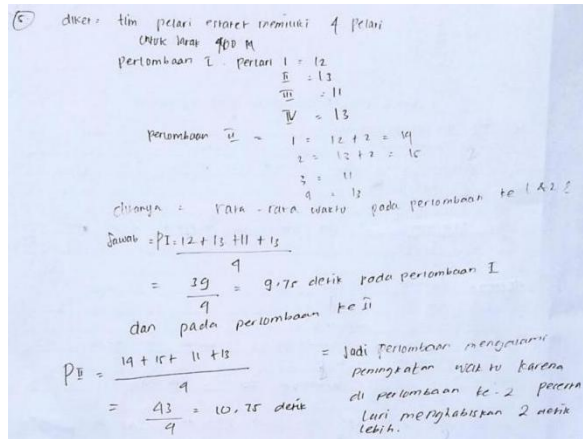 5. diket : tim pelari estafet memiliki 4 pelari
untuk jarak 400 M
perlombaan I pelari 1 = 12
II = 13
III = 11
IV = 13
perlombaan II = 1 = 12 + 2 = 14
2 = 13 + 2 = 15
3 = 11
4 = 13
ditanya = rata - rata waktu pada perlombaan ke 1 & 2 ?
Jawab = PI = 12 + 13 + 11 + 13
4
= 39 = 9,75 detik pada perlombaan I
4
dan pada perlombaan ke II
PII = 14 + 15 + 11 + 13
4
= 43 = 10,75 detik
4
= Jadi perlombaan mengalami
peningkatan waktu karena
di perlombaan ke-2 peserta
lari menghabiskan 2 detik
lebih.